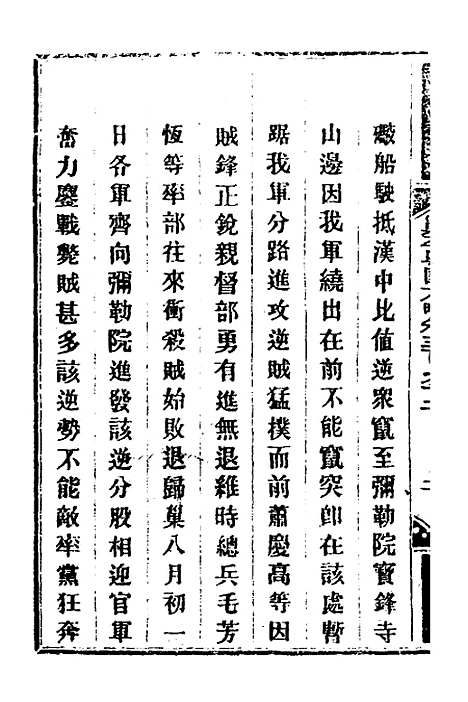 礮船駛抵漢中比值逆衆竄至彌勒院寳鋒寺
山邊因我軍繞出在前不能竄突卽在該處暫
踞我軍分路進攻逆賊猛撲而前蕭慶高等因
賊鋒正銳親督部勇有進無退維時總兵毛芳
恆等率部往來衝殺賊始敗退歸巢八月初一
日各軍齊向彌勒院進發該逆分股相迎官軍
奮力鏖戰斃賊甚多該逆勢不能敵率黨狂奔